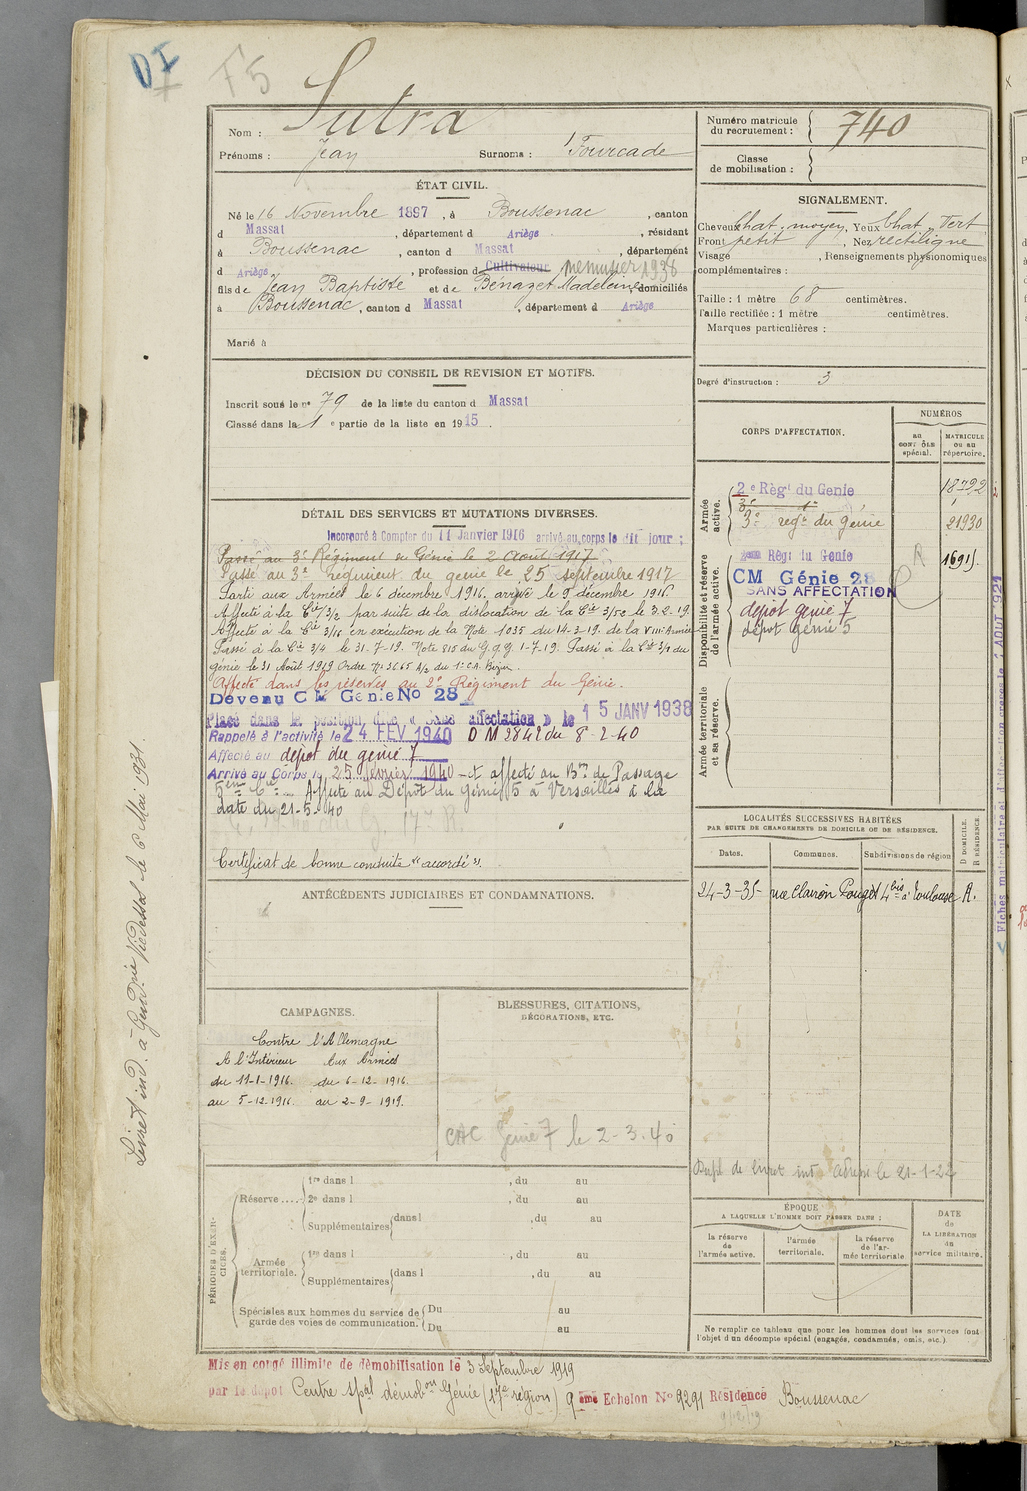 DI
F5
Nom : Sutra
Prénoms : Jean Surnoms : Fourcade
Numéro matricule du recrutement : 740
Classe de mobilisation :
ÉTAT CIVIL.
Né le 16 Novembre 1897, à Boussenac, canton
d Massat, département d Ariège, résidant
à Boussenac, canton d Massat, département
d Ariège, profession d Cultivateur menuisier 1938
fils de Jean Baptiste et de Bénazet Madeleine, domiciliés
à Boussenac, canton d Massat, département d Ariège
Marié à
SIGNALEMENT.
Cheveux chat. moyen, Yeux chat. vert
Front petit, Nez rectiligne
Visage , Renseignements physionomiques
complémentaires :
Taille : 1 mètre 68 centimètres.
Taille rectifiée : 1 mètre centimètres.
Marques particulières :
Degré d'instruction : 3
DÉCISION DU CONSEIL DE REVISION ET MOTIFS.
Inscrit sous le n° 79 de la liste du canton d Massat
Classé dans la 1e partie de la liste en 1915.
DÉTAIL DES SERVICES ET MUTATIONS DIVERSES.
Incorporé à Compter du 11 Janvier 1916 arrivé au corps le dit jour ;
Passé au 3e Régiment du Génie le 2 Aout 1917
Passé au 3e régiment du génie le 25 septembre 1917
Parti aux Armées le 6 décembre 1916. arrivé le 9 décembre 1916.
Affecté à la Cie 3/2 par suite de la dislocation de la Cie 3/52 le 3.2.19.
Affecté à la Cie 3/16 en exécution de la Note 1035 du 14-3-19. de la VIIIe Armée
Passé à la Cie 3/4 le 31-7-19. Note 815 du G.Q.G. 1-7-19. Passé à la Cie 3/1 du
génie le 31 Août 1919 Ordre No 3C65 A/2 du 1er C.A.
Affecté dans les réserves au 2e Régiment du Génie.
Devenu C M Génie No 28
Placé dans la position dite « Sans affectation » le 15 JANV 1938
Rappelé à l'activité le 24 FEV 1940 D M 2842 du 8-2-40
Affecté au dépot du génie 7
Arrivé au Corps le 25 février 1940 - et affecté au Bon de Passage
5ème Cie - Affecté au Dépot du Génie 5 à Versailles à la
date du 21-5-40
Certificat de bonne conduite "accordé".
CORPS D'AFFECTATION.
NUMÉROS
au CONTRÔLE spécial.
MATRICULE ou au répertoire.
Armée active.
2e Régt du Genie 18792
3e régt du génie 21930
Disponibilité et réserve de l'armée active.
Régt du Genie 1691
CM Génie 28
SANS AFFECTATION
dépot génie 7
dépot génie 5
Armée territoriale et sa réserve.
LOCALITÉS SUCCESSIVES HABITÉES
PAR SUITE DE CHANGEMENTS DE DOMICILE OU DE RÉSIDENCE.
Dates. Communes. Subdivisions de région D DOMICILE. R RÉSIDENCE.
24-3-35- rue Clairon Pouget 4bis à Toulouse R.
ANTÉCÉDENTS JUDICIAIRES ET CONDAMNATIONS.
CAMPAGNES.
Contre l'Allemagne
A l'Intérieur Aux Armées
du 11-1-1916. du 6-12-1916.
au 5-12-1916. au 2-9-1919.
BLESSURES, CITATIONS,
DÉCORATIONS, ETC.
CAC Genie 7 le 2-3.40
Dupl de livret ind adressé le 21-1-22
PÉRIODES D'EXERCICES.
Réserve ....
1re dans l , du au
2e dans l , du au
Supplémentaires dans l , du au
Armée territoriale.
1re dans l , du au
Supplémentaires dans l , du au
Spéciales aux hommes du service de garde des voies de communication.
Du au
Du au
ÉPOQUE
A LAQUELLE L'HOMME DOIT PASSER DANS :
la réserve de l'armée active.
l'armée territoriale.
la réserve de l'armée territoriale
DATE de LA LIBÉRATION du service militaire.
Ne remplir ce tableau que pour les hommes dont les services font
l'objet d'un décompte spécial (engagés, condamnés, omis, etc.).
Mis en congé illimité de démobilisation le 3 Septembre 1919
par le dépot Centre spal démobon Génie (17e région) 9ème Echelon No 9291 Résidence Boussenac
Livret ind. à Gendie Vicdessos le 6 Mai 1931.